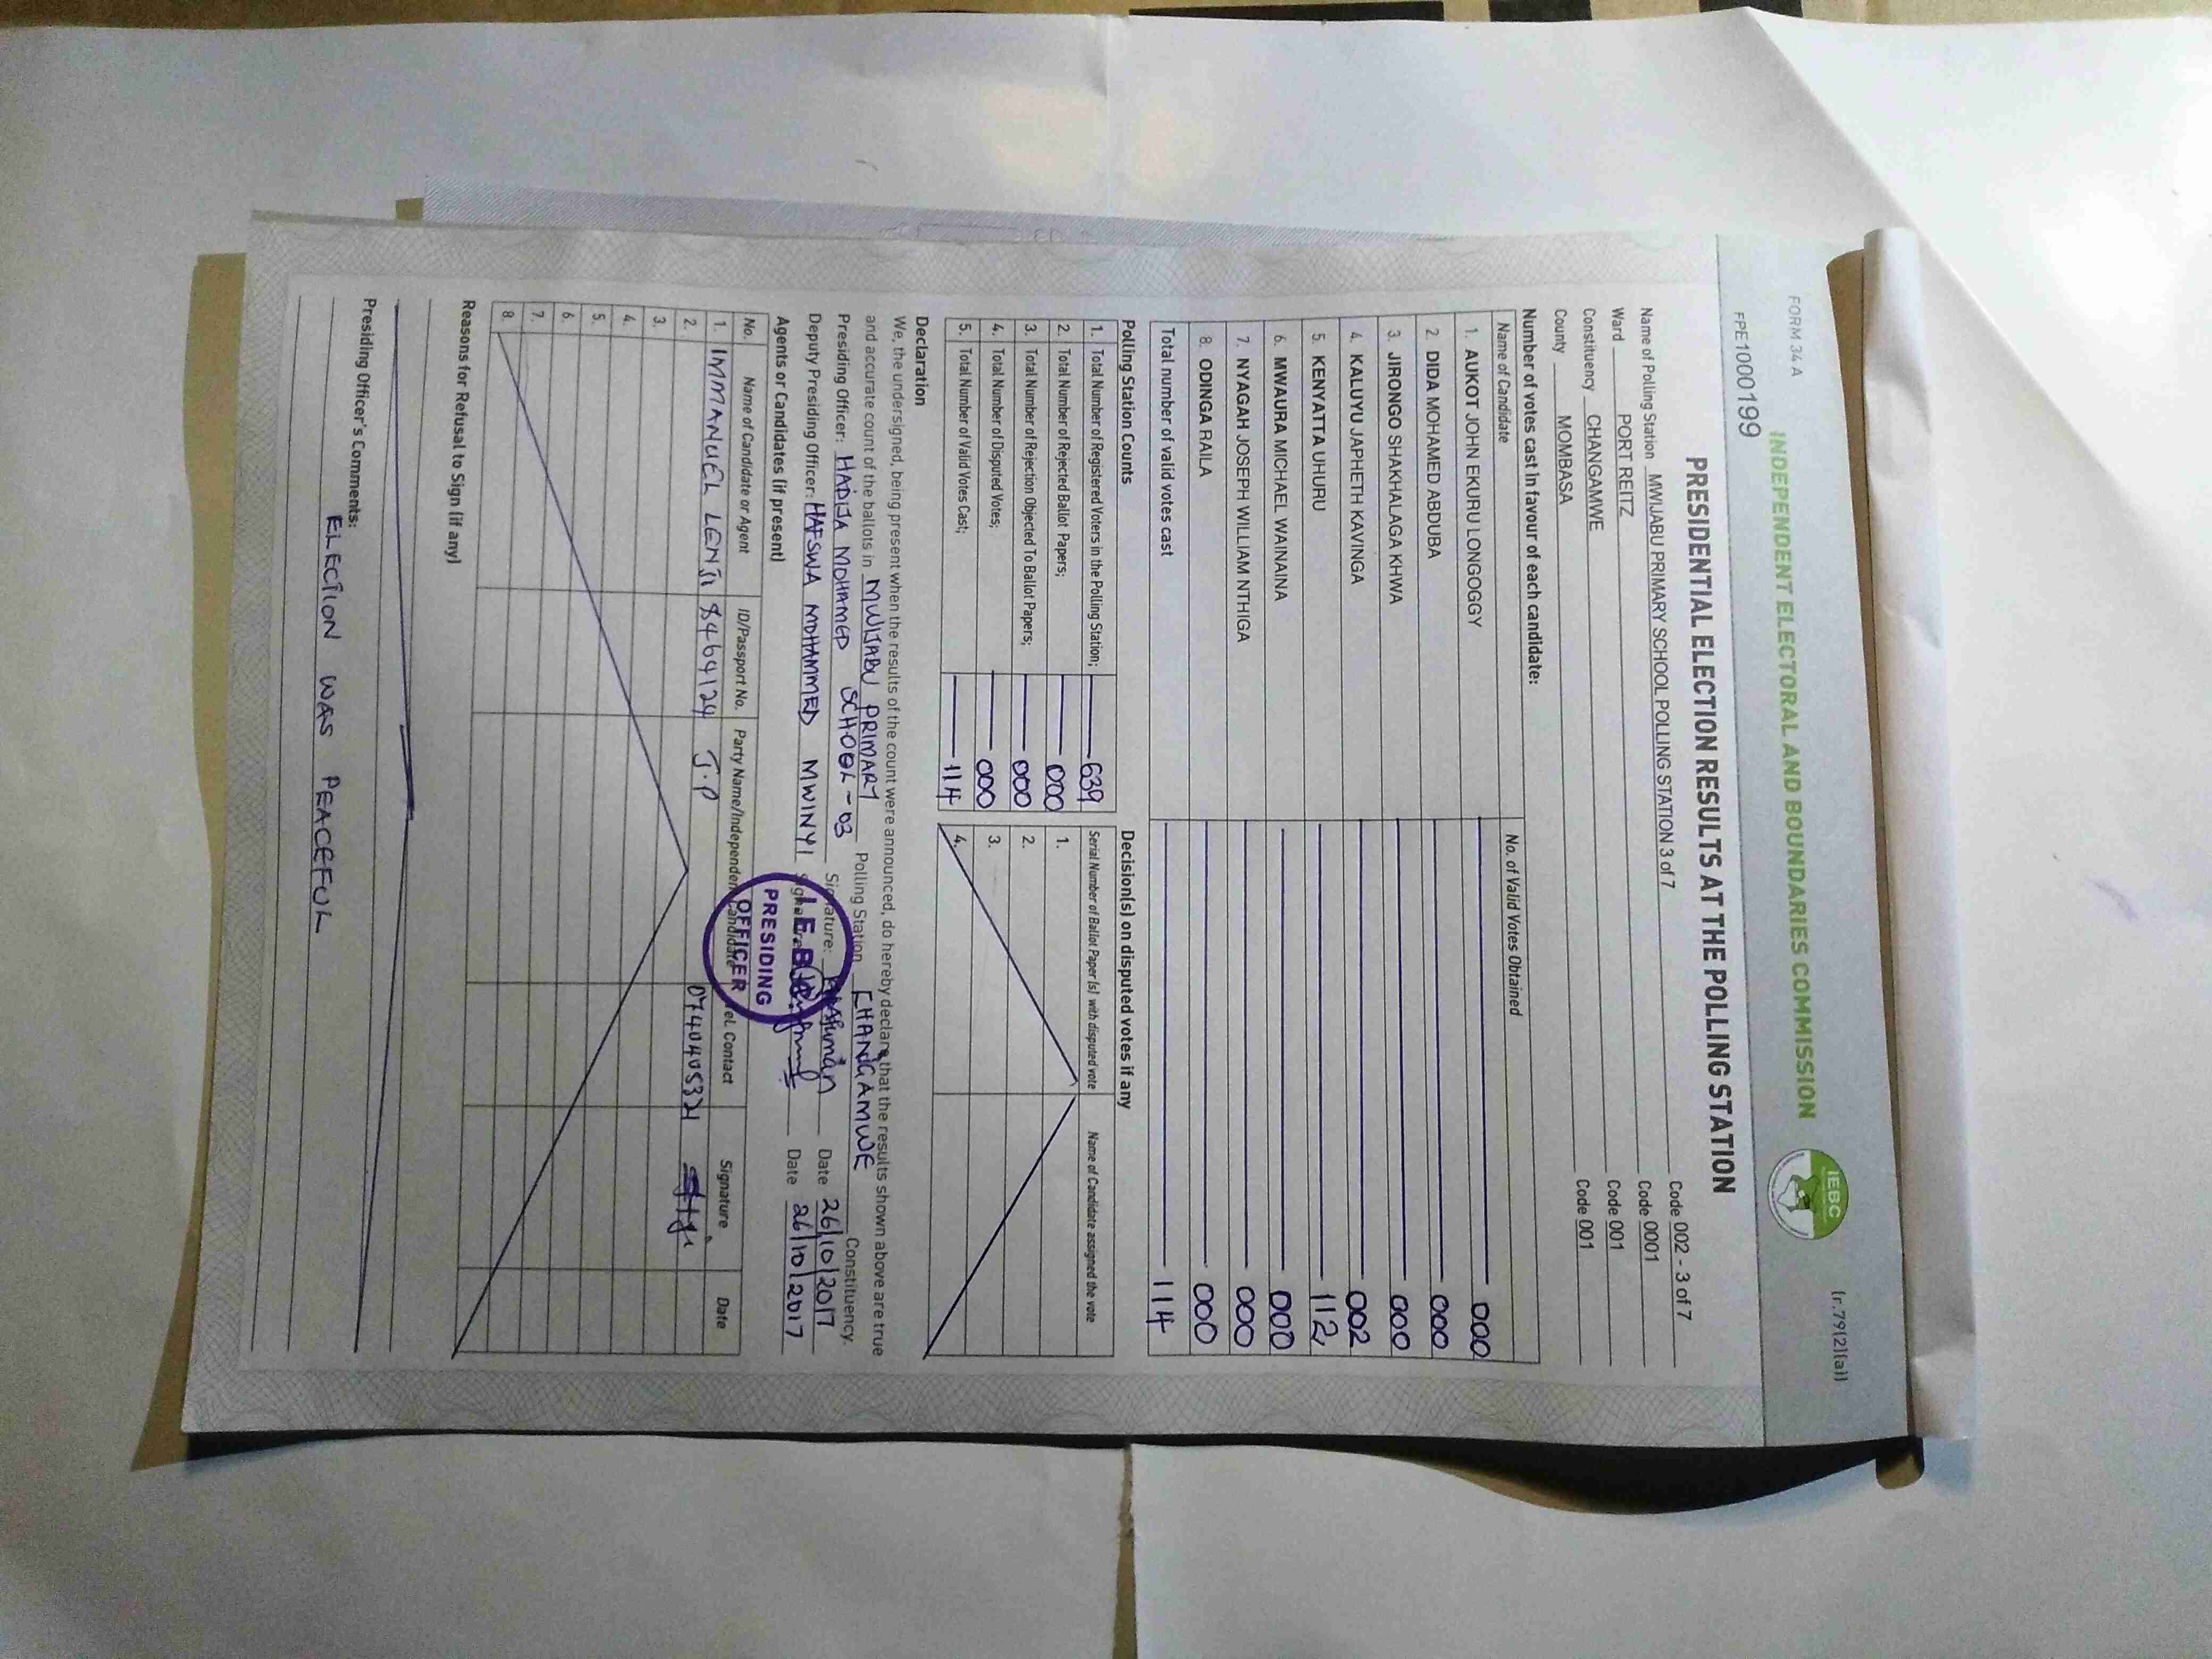 FORM 34 A
(r.79(2)(a))
INDEPENDENT ELECTORAL AND BOUNDARIES COMMISSION
IEBC
FPE10001​99
PRESIDENTIAL ELECTION RESULTS AT THE POLLING STATION
Name of Polling Station MWIJABU PRIMARY SCHOOL POLLING STATION 3 of 7 Code 002 - 3 of 7
Ward PORT REITZ Code 0001
Constituency CHANGAMWE Code 001
County MOMBASA Code 001
Number of votes cast in favour of each candidate:
Name of Candidate No. of Valid Votes Obtained
1. AUKOT JOHN EKURU LONGOGGY 000
2. DIDA MOHAMED ABDUBA 000
3. JIRONGO SHAKHALAGA KHWA 000
4. KALUYU JAPHETH KAVINGA 002
5. KENYATTA UHURU 112
6. MWAURA MICHAEL WAINAINA 000
7. NYAGAH JOSEPH WILLIAM NTHIGA 000
8. ODINGA RAILA 000
Total number of valid votes cast 114
Polling Station Counts Decision(s) on disputed votes if any
Serial Number of Ballot Paper(s) with disputed vote Name of Candidate assigned the vote
1. Total Number of Registered Voters in the Polling Station; 639 1.
2. Total Number of Rejected Ballot Papers; 000 2.
3. Total Number of Rejection Objected To Ballot Papers; 000 3.
4. Total Number of Disputed Votes; 000 4.
5. Total Number of Valid Votes Cast; 114
Declaration
We, the undersigned, being present when the results of the count were announced, do hereby declare that the results shown above are true
and accurate count of the ballots in MWIJABU PRIMARY SCHOOL - 03 Polling Station CHANGAMWE Constituency.
Presiding Officer: HADIJA MOHAMED Signature: Date 26/10/2017
Deputy Presiding Officer: HAFSWA MOHAMMED MWINYI Signature Date 26/10/2017
I.E.B.C
PRESIDING
OFFICER
Agents or Candidates (if present)
No. Name of Candidate or Agent ID/Passport No. Party Name/Independent Candidate Tel. Contact Signature Date
1. IMMANUEL LENJI 8469124 J.P 0740405321
2.
3.
4.
5.
6.
7.
8.
Reasons for Refusal to Sign (if any)
Presiding Officer's Comments:
ELECTION WAS PEACEFUL